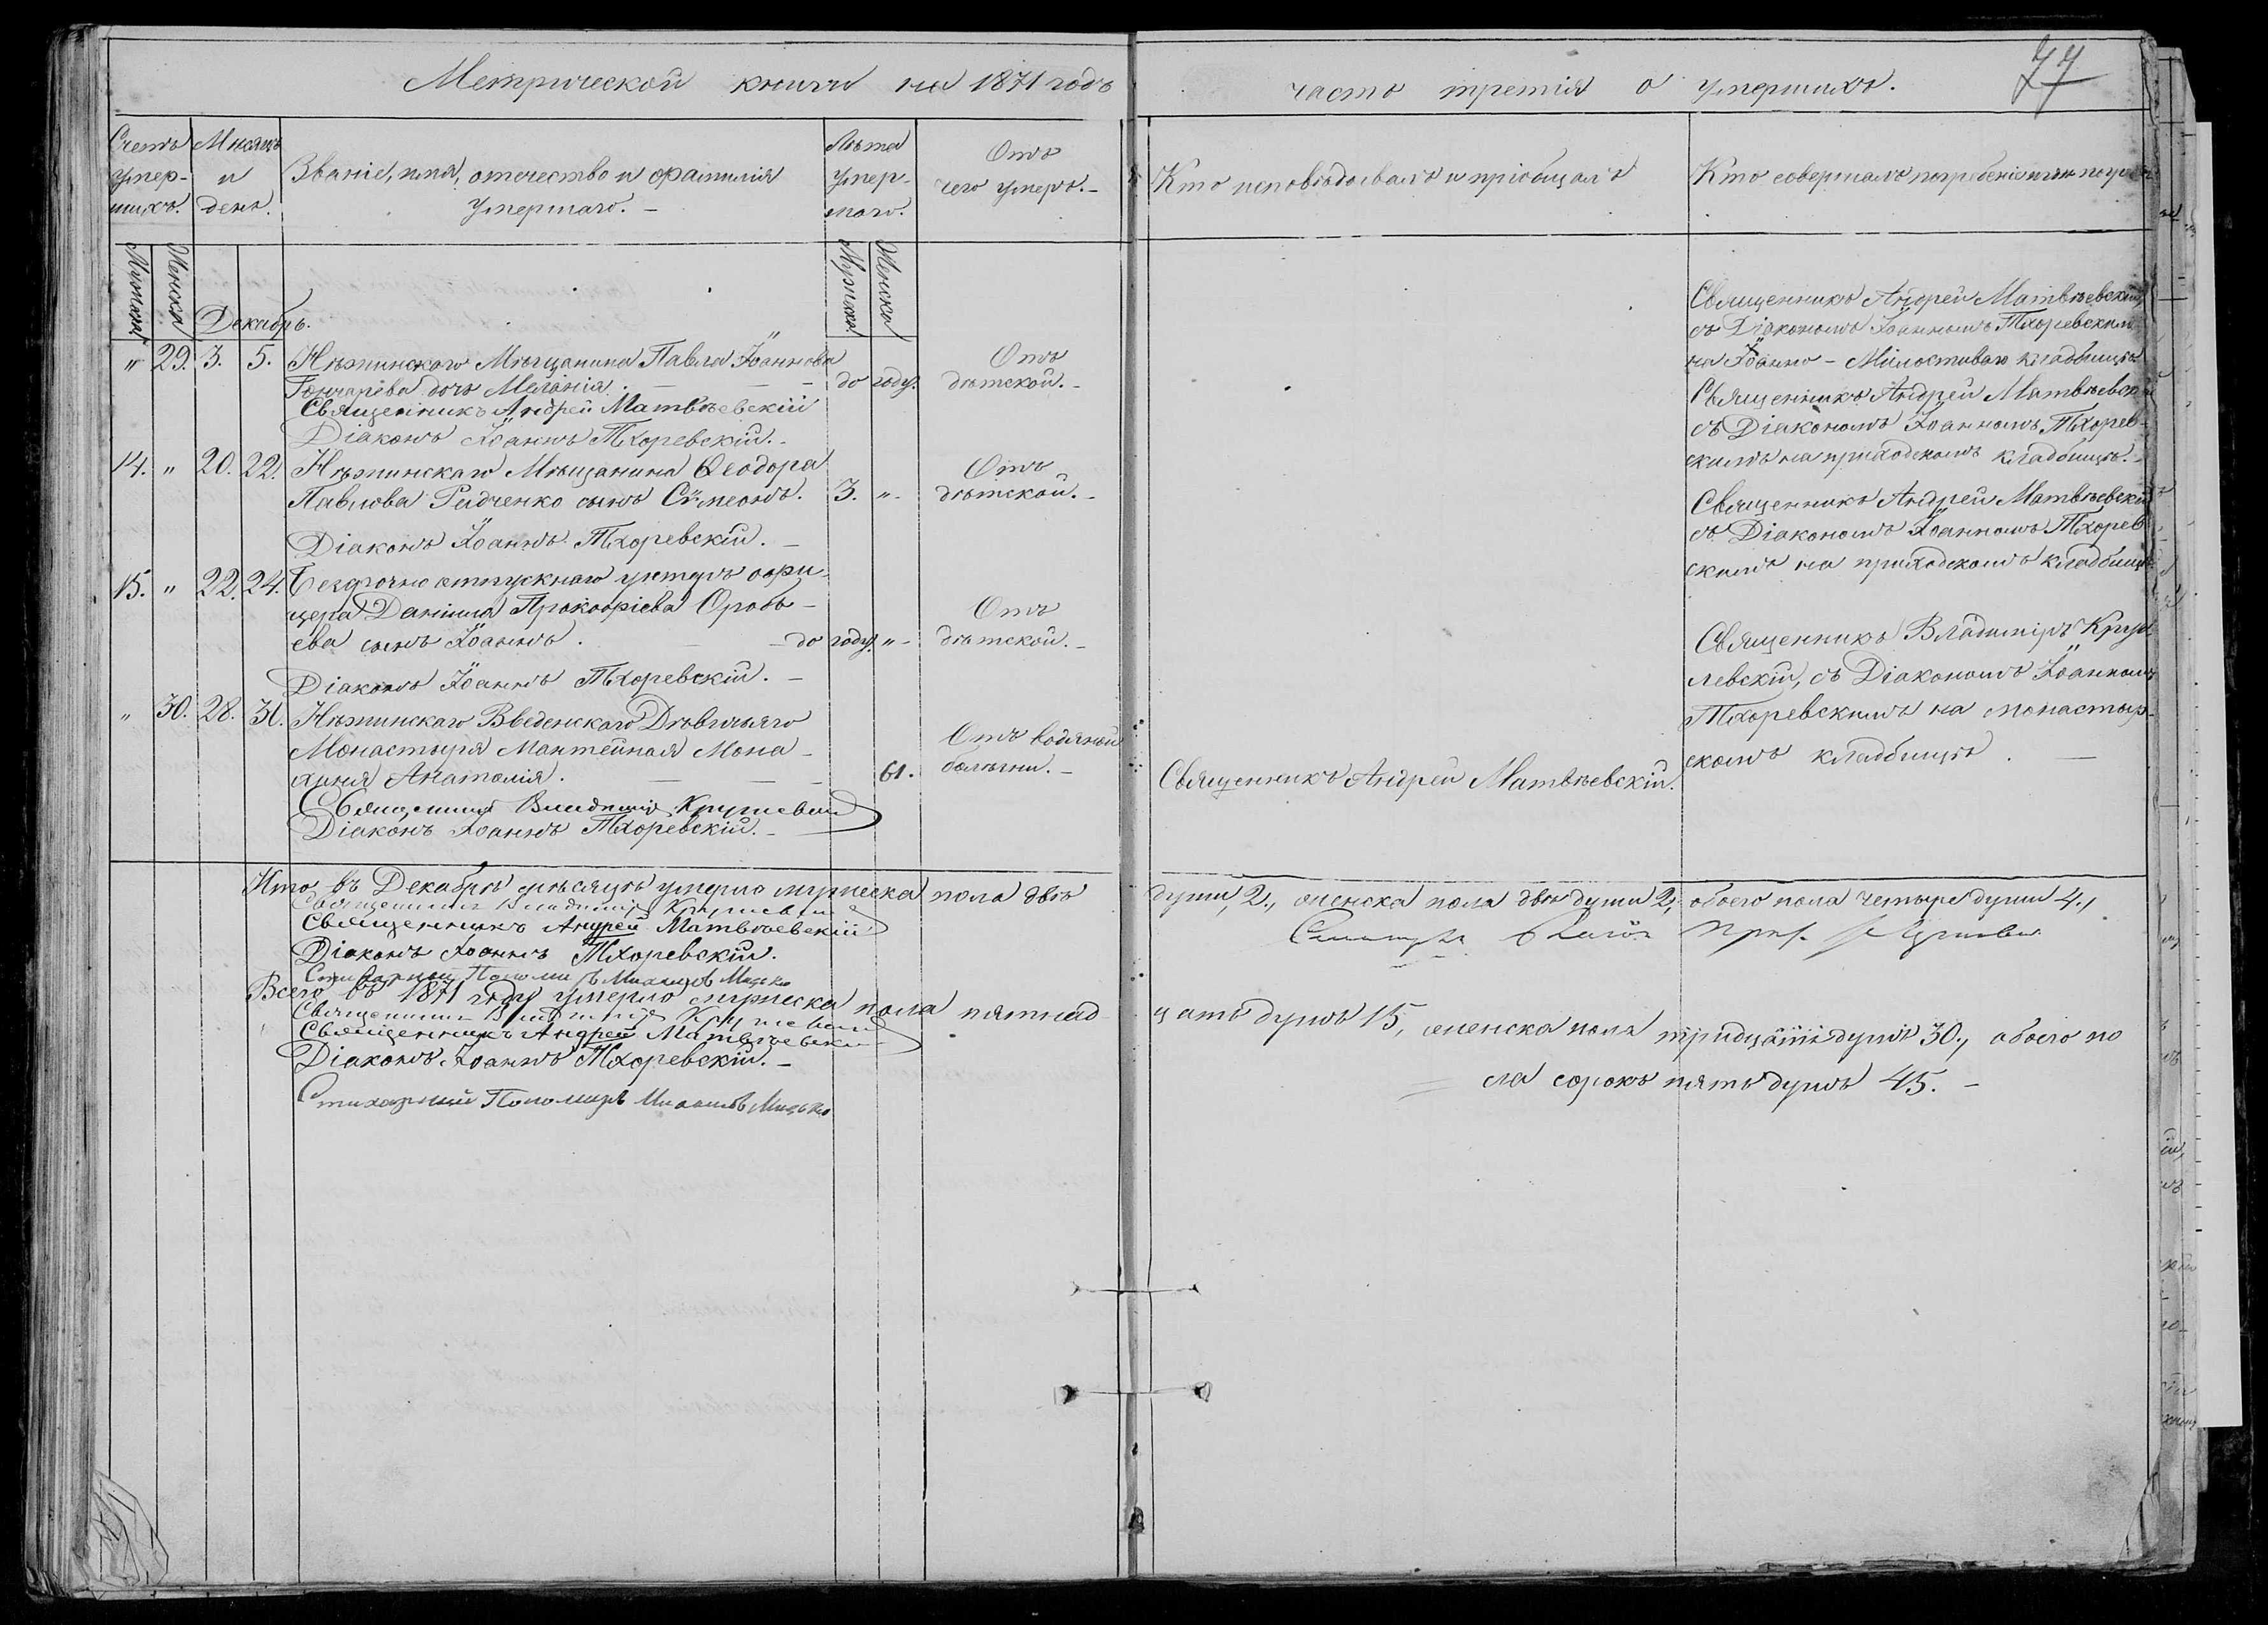 Метрической книги на 1871 годъ
часть третія о умершихъ.
77
Счетъ умер-шихъ.
Мѣсяцъ и день.
Званіе, имя, отечество и фамилія
умершаго. —
Лѣта умер-шаго.
Отъ
чего умеръ. —
Кто исповѣдовалъ и пріобщалъ
Кто совершалъ погребеніе и гдѣ погреб
Мужска
Женска
Мужска
Женска
Декабрь.
" 29. 3. 5. Нѣжинскаго Мѣщанина Павла Іоаннова
Гончарева дочь Меланія. — — до году.
Отъ
дѣтской. —
Священникъ Андрей Матвѣевскій
Діаконъ Іоаннъ Тхоревскій. —
Священникъ Андрей Матвѣевскій
съ Діакономъ Іоанномъ Тхоревскимъ
на Іоанно-Милостиваго кладбищѣ
14. " 20. 22. Нѣжинскаго Мѣщанина Ѳеодора
Павлова Радченко сынъ Сѵмеонъ. 3. "
Отъ
дѣтской. —
Діаконъ Іоаннъ Тхоревскій. —
Священникъ Андрей Матвѣевскі
съ Діакономъ Іоанномъ Тхорев-
скимъ на приходскомъ кладбищѣ. —
15. " 22. 24. Безсрочно отпускнаго унтеръ офи-
цера Даніила Прокофіева Ороб-
ева сынъ Іоаннъ. — — до году. "
Отъ
дѣтской. —
Діаконъ Іоаннъ Тхоревскій. —
Священникъ Андрей Матвѣевскій
съ Діакономъ Іоанномъ Тхорев-
скимъ на приходскомъ кладбищѣ
" 30. 28. 31. Нѣжинскаго Введенскаго Дѣвичьяго
Монастыря Мантейная Мона-
хиня Анатолія. — — — 61.
Отъ водяной
болѣзни. —
Священникъ Андрей Матвѣевскій.
Священникъ Владиміръ
левскій, съ Діакономъ Іоанномъ
Тхоревскимъ на монастыр-
скомъ кладбищѣ. —
Священникъ Владиміръ
Діаконъ Іоаннъ Тхоревскій. —
Итого въ Декабрѣ мѣсяцѣ умерло мужеска пола двѣ души, 2., женска пола двѣ души 2, обоего пола четыре души 4.,
Священникъ Владиміръ
Священникъ Андрей Матвѣевскій
Діаконъ Іоаннъ Тхоревскій.
Стихарный Пономарь Михаилъ
Всего въ 1871 году умерло мужеска пола пятнад цать душъ 15, женска пола тридцать душъ 30., обоего по
ла сорокъ пять душъ 45. —
Священникъ Владиміръ
Священникъ Андрей Матвѣевскій
Діаконъ Іоаннъ Тхоревскій. —
Стихарный Пономарь Михаилъ